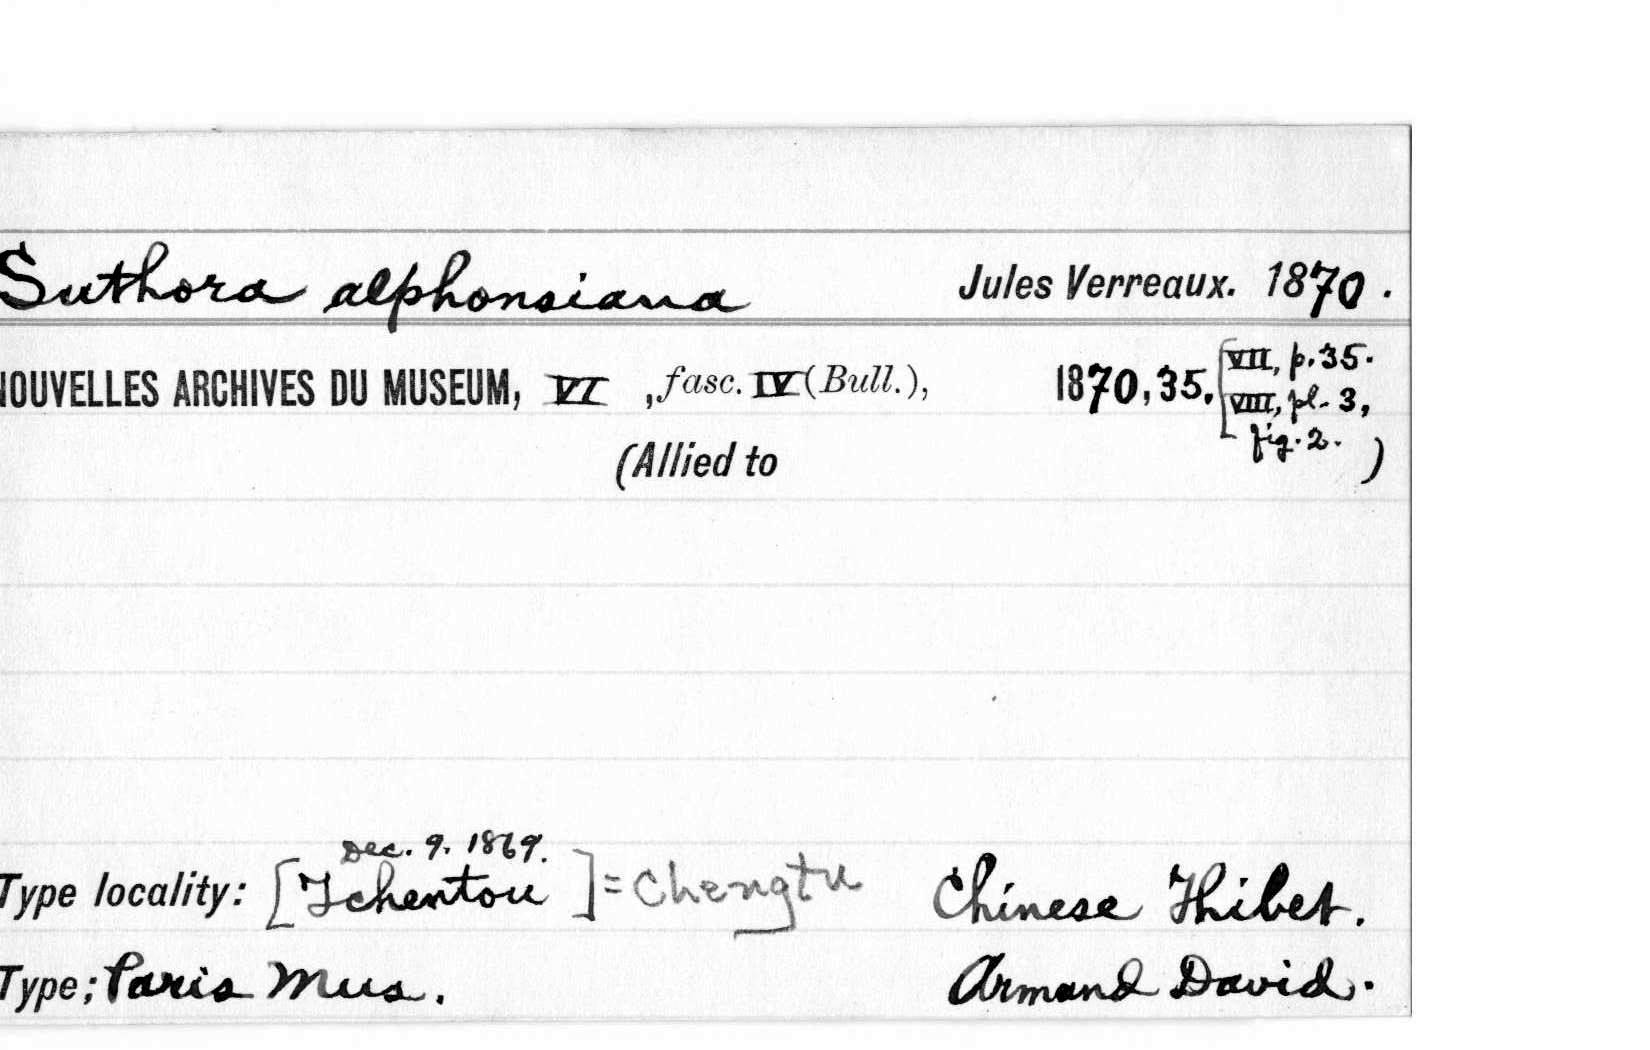 Suthora alphonsiana Jules Verreaux. 1870.
NOUVELLES ARCHIVES DU MUSEUM, VI, fasc. IV (Bull.), 1870, 35. [VII, p. 35.
VIII, pl. 3,
fig. 2.
(Allied to )
Dec. 9. 1869.
Type locality: [Tchentou] = Chengtu Chinese Thibet.
Type; Paris Mus. Armand David.